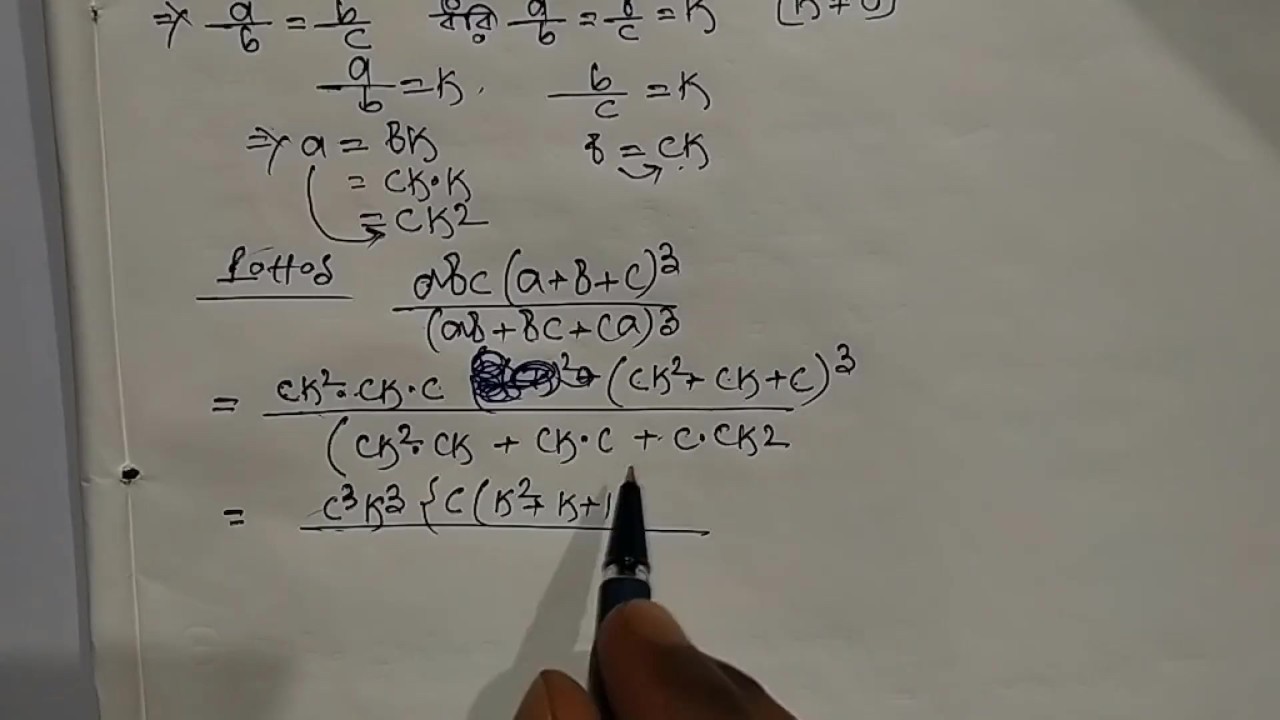 ⇒ a/b = b/c ধরি, a/b = b/c = K
a/b = K, b/c = K
⇒ a = BK B = CK
= CK·K
= CK2
abc (a+B+C)^3 / (aB+BC+Ca)^3
= CK^2·CK·C (CK^2+CK+C)^3 / (CK^2·CK + CK·C + C·CK2
= C^3K^3 {C(K^2+K+1